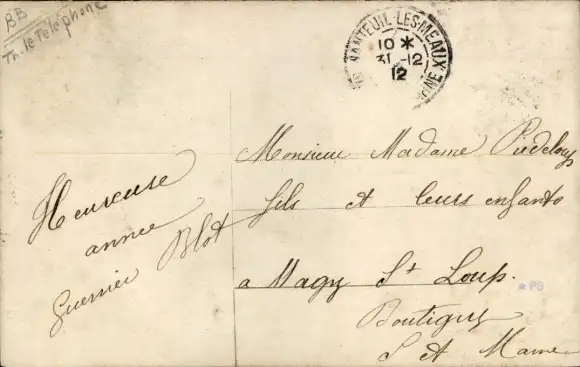 BB
Th. le Telephone
NANTEUIL-LES-MEAUX
10 *
31 -12
12
Monsieur Madame Piedeloup
fils et leurs enfants
a Magny St Loup.
Boutigny
S et Marne
Heureuse
année
Guerrier Blot
* PG